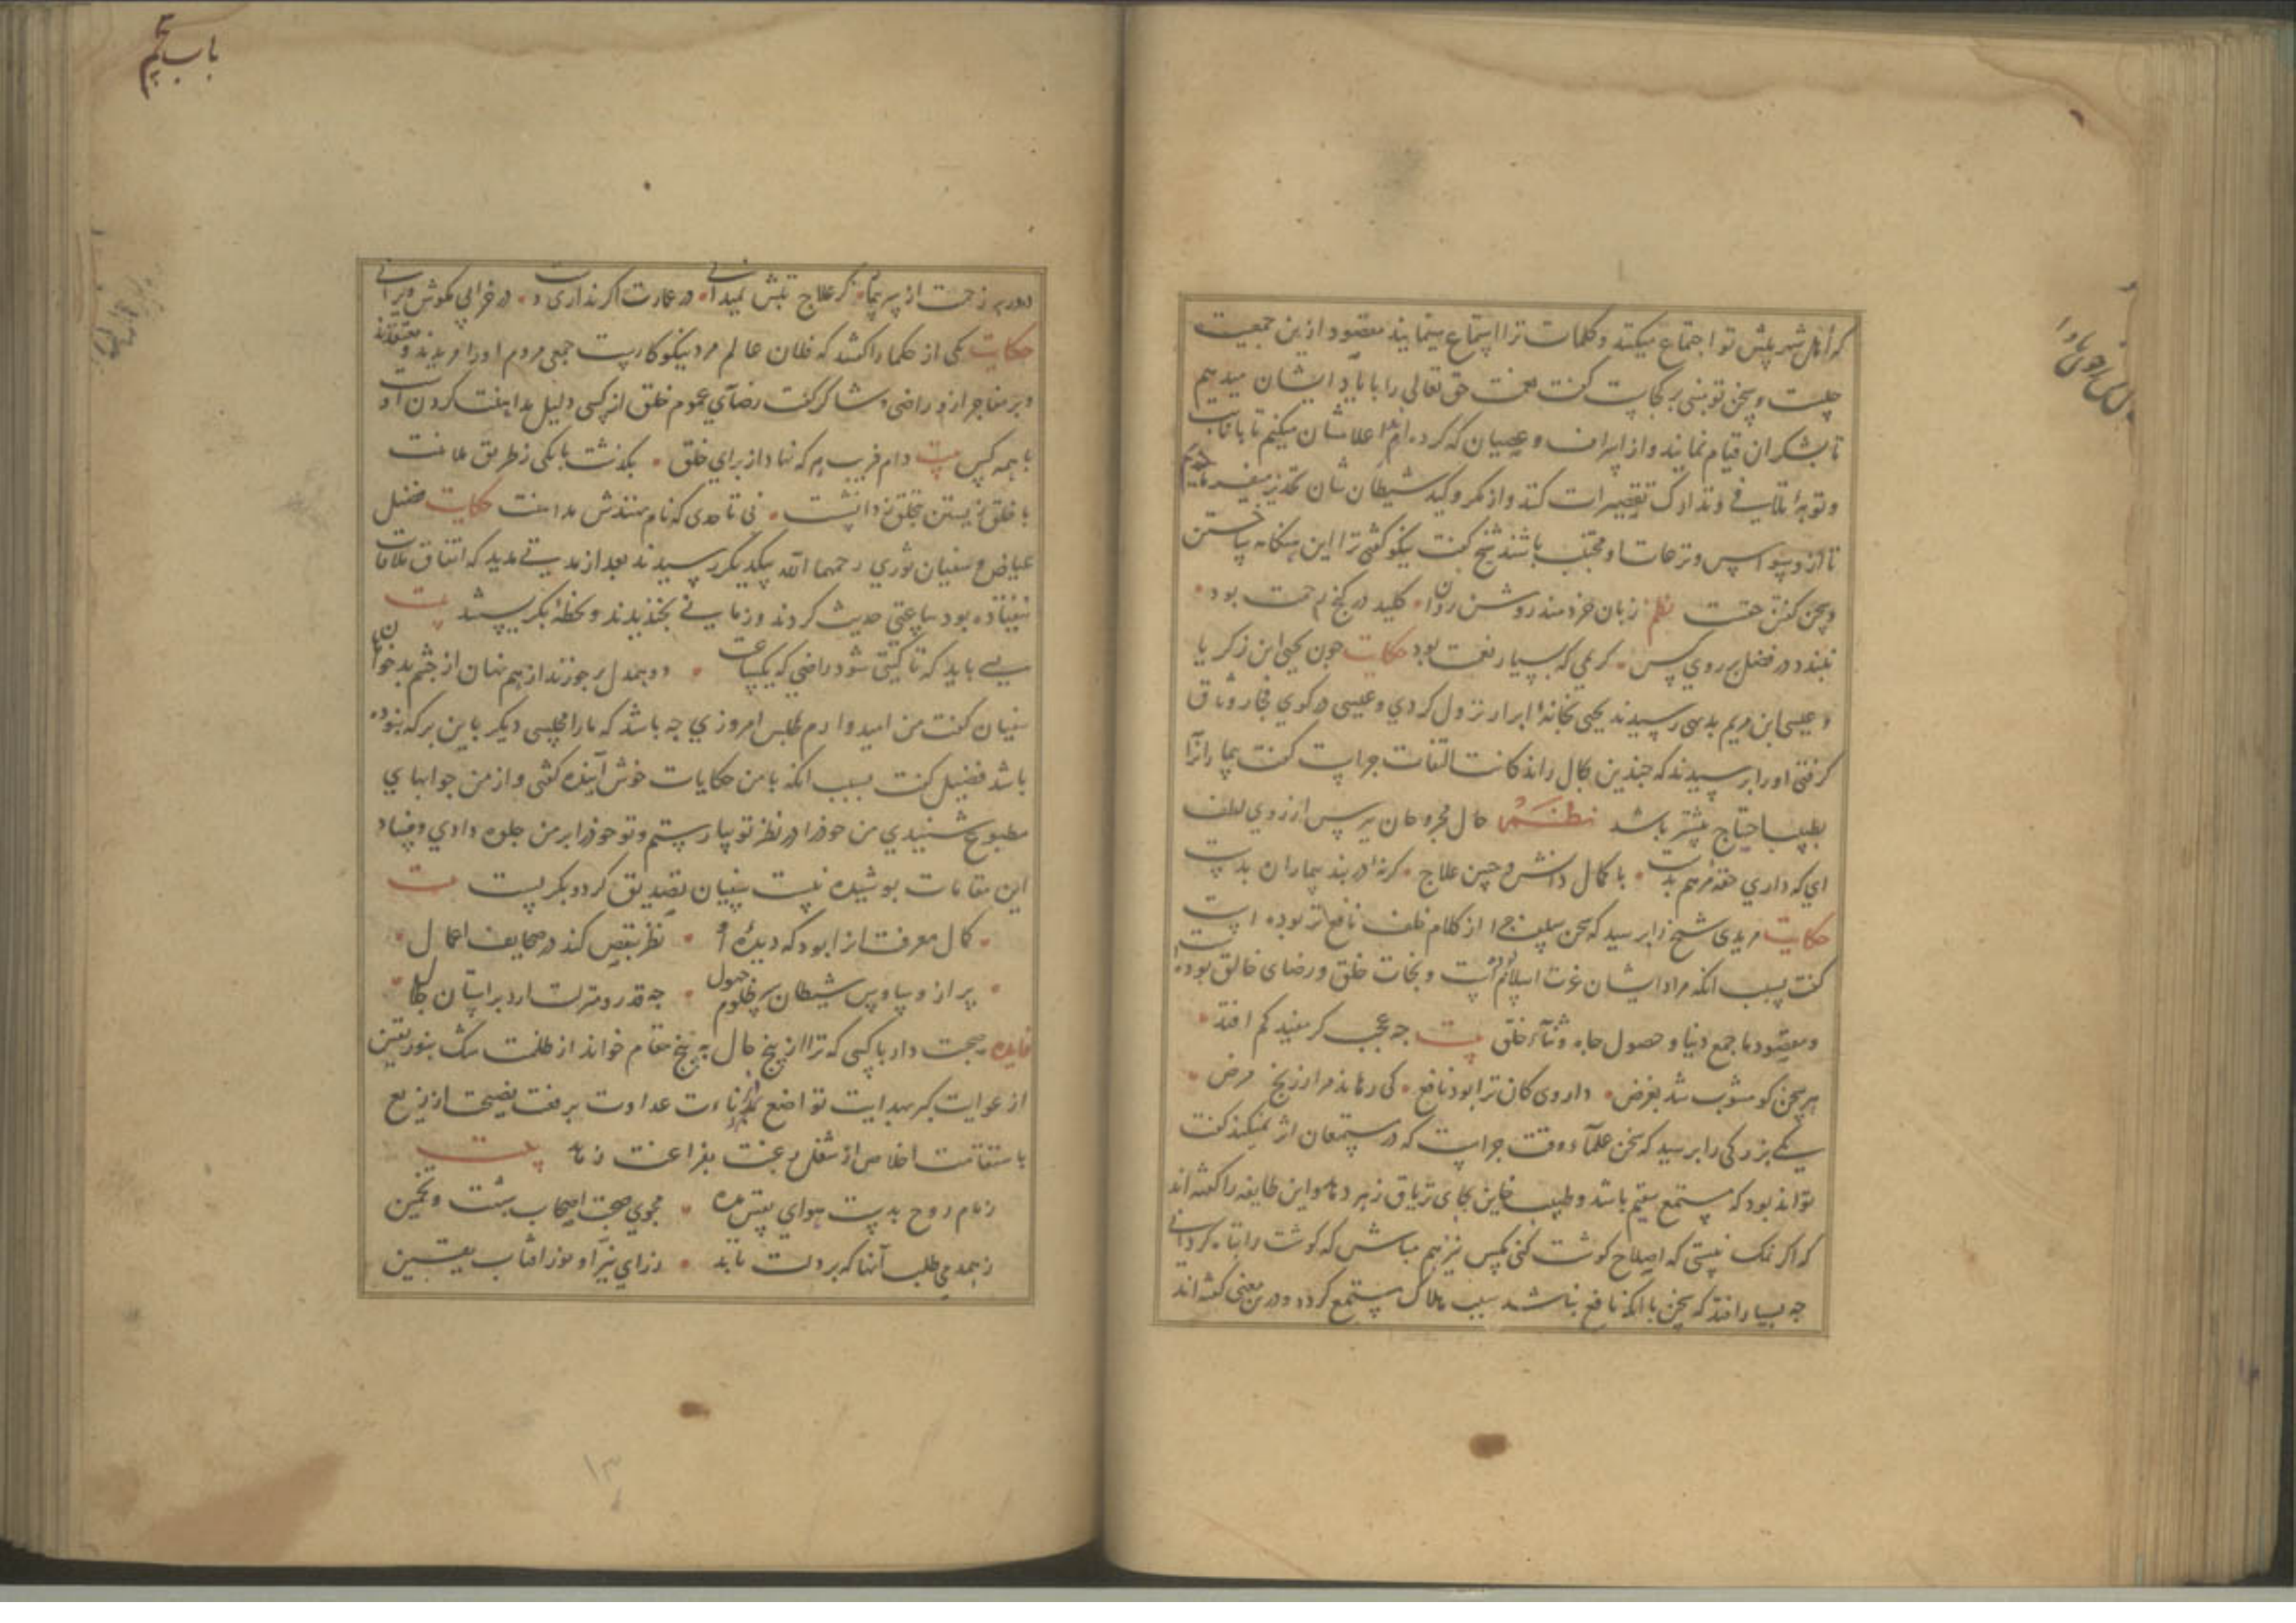 که اهل شهر پیش تو اجتماع میکنند و کلمات ترا استماع مینمایند مقصود ازین جمعیت
چیست و سخن تو مبنی بر کجاست کفت نعمت حق تعالی را با یاد ایشان میدهیم
تا بشکر ان قیام نمایند و از اسراف و عصیان که کرده اند اعلامشان میکنیم تا بانابت
و توبه تلافی و تدارک تقصیرات کنند و از مکر و کید شیطان شان تحذیر میفرماییم
تا از وسواس و ترهات او مجتنب باشند شیخ کفت نیکو کفتی ترا این هنکامه ساختن
و سخن کفتن حقست نظم زبان خردمند روشن روان کلید در کنج رحمت بود
نبندد در فضل بر روی کس کریمی که بسیار نعمت بود حکایت جون یحیی ابن زکریا
و عیسی ابن مریم بدهی رسیدند یحیی بخانه ابرار نزول کردی و عیسی در کوی فجار وثاق
کرفتی اورا برسیدند که جندین بحال راندکانت التفات جراست کفت بیمارانرا
بطبیب احتیاج بیشتر باشد نظم حال مجروحان بپرس از روی لطف
ای که داری حقه مرهم بدست با کمال دانش و حسن علاج کرنه در بند بیماران بدست
حکایت مریدی شیخ را برسید که سخن سلف جرا از کلام خلف نافع تر بوده است
کفت بسبب انکه مراد ایشان عزت اسلام است و نجات خلق و رضای خالق بوده است
و مقصود ما جمع دنیا و حصول جاه و ثناء خلق بیت جه عجب کر مفید کم افتد
هر سخن کو مشوب شد بغرض داروی کان ترا بود نافع کی رهاند مرا ز رنج مرض
یکی بزرکی را برسید که سخن علماء وقت جراست که در مستمعان اثر نمیکند کفت
تواند بود که مستمع سقیم باشد و طبیب خاین بجای تریاق زهر دهد و این طایفه را کفته اند
که اکر نمک نیستی که اصلاح کوشت کنی مکس نیز هم مباش که کوشت را تباه کردانی
جه بسیار افتد که سخن با انکه نافع نباشد سبب هلاک مستمع کردد و درین معنی کفته اند
باب پنجم
دور بر زحمت از بر بیمار کر علاج تبش نمیدانی در عمارت اکر نداری دست در خرابی مکوش ویرانی
حکایت یکی از حکما را کفتند که فلان عالم مرد نیکوکارست جمعی مردم اورا مریدند و معتقدند
و بر و فاجر ازو راضی و شاکر کفت رضای عموم خلق از کسی دلیل مداهنت کردن اوست
با همه کس بیت دام فریب هر که نهاد از برای خلق بکذشت بایکی ز طریق ملامت
با خلق زیستن بتخلق توانست نی تا حدی که نام نهندش مداهنت حکایت فضیل
عیاض و سفیان ثوری رحمهما الله بیکدیکر رسیدند بعد از مدتی مدید که اتفاق ملاقات
نیفتاده بود ساعتی حدیث کردند و زمانی بخندیدند و لحظه بکریستند بیت
بسی باید که تا کیتی شود راضی که یکساعت دو همدل بر جوزند از هم نهان از جشم بدخواهان
سفیان کفت من امیدوارم مجلس امروزی جه باشد که مارا مجلسی دیکر باین برکه نبوده
باشد فضیل کفت بسبب انکه با من حکایات خوش آینده کفتی و از من جوابهای
مطبوع شنیدی من خودرا در نظر تو بیاراستم و تو خودرا بر من جلوه دادی و فساد
این مقامات بوشیده نیست سفیان تصدیق کرد و بکریست بیت
کمال معرفت انرا بود که دیده او نظر بنقص کند در صحایف اعمال
پر از وساوس شیطان جه قدر و منزلت ارد براستان جلال
فایده صحبت دار با کسی که ترا از پنج حال به پنج مقام خواند از ظلمت شک بنور یقین
از غوایت کبر بهدایت تواضع از عداوت برفعت نصیحت از
باستقامت اخلاص از شغل رغبت بفراغت زهد بیت
زمام روح بدست هوای نفس مده مجوی صحبت اصحاب و تخمین
ز همدمی طلب آنها که بر دلت تابد ز رای نیر او نور افتاب یقین
۱۳